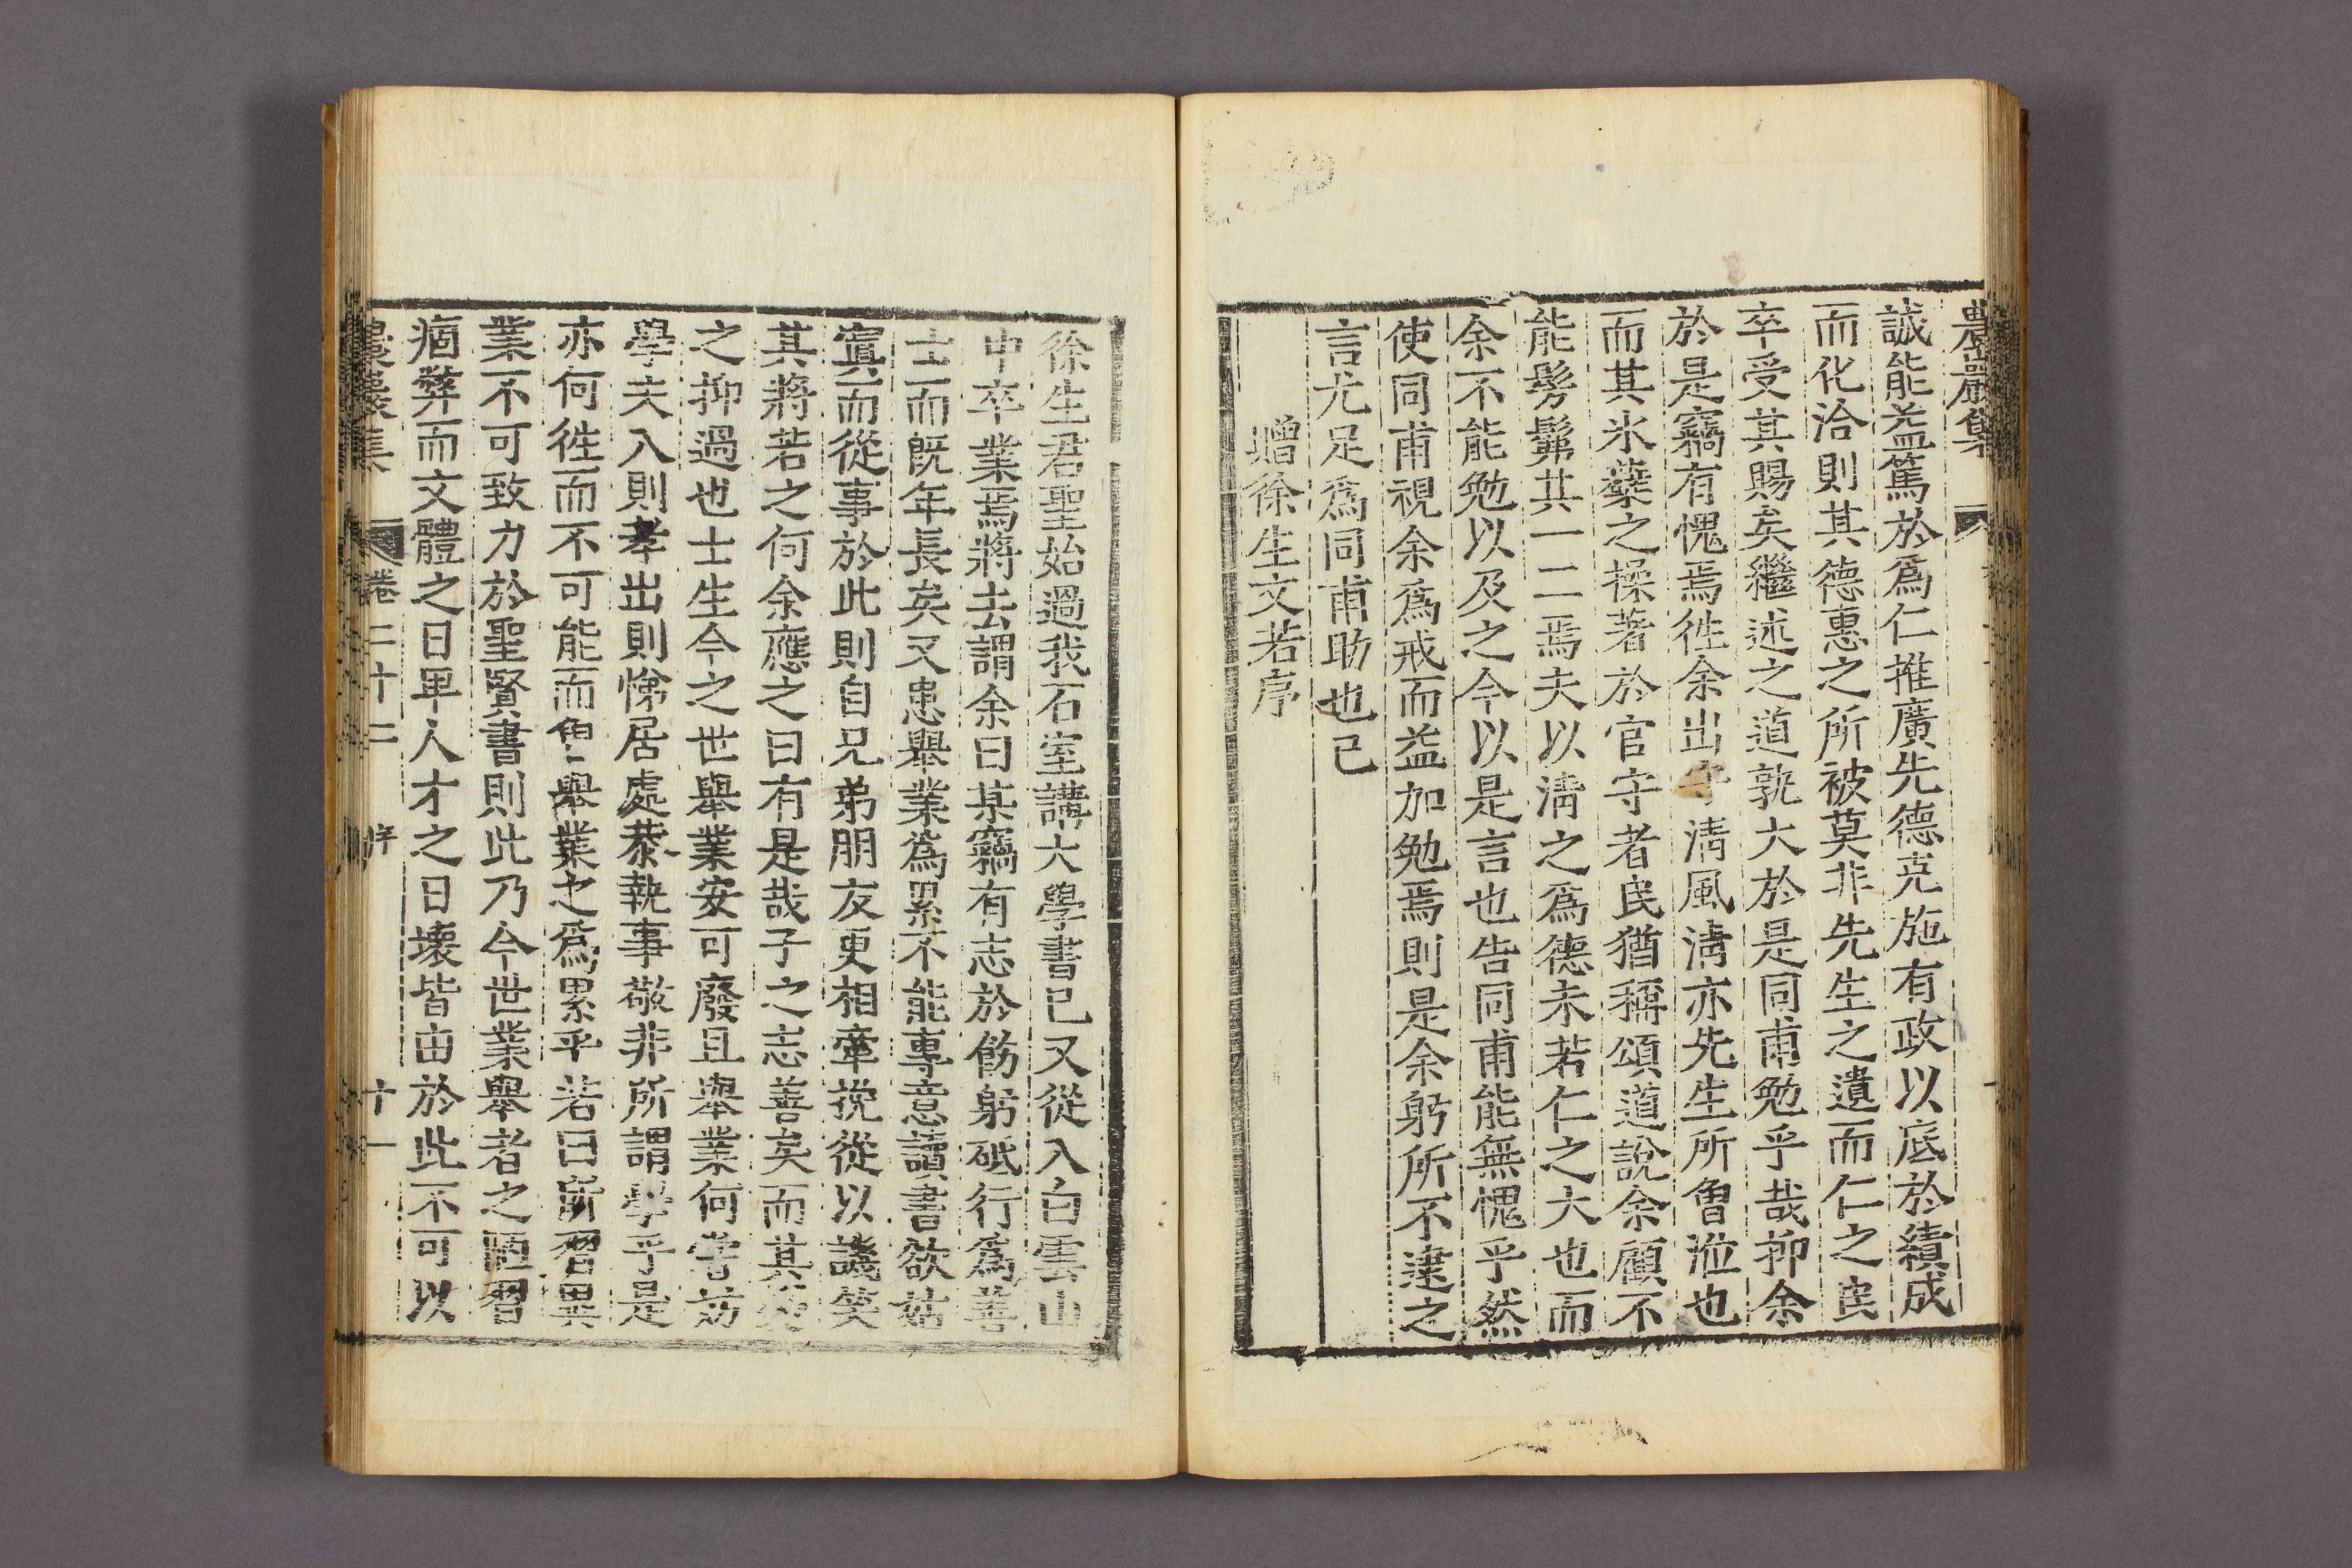 農巖集
誠能益篤於爲仁推廣先德克施有政以底於績成
而化洽則其德惠之所被莫非先生之遺而仁之民
卒受其賜矣繼述之道孰大於是同甫勉乎哉抑余
於是竊有愧焉徃余出守淸風淸亦先生所曾涖也
而其氷蘗之操著於官守者民猶稱頌道說余顧不
能髣髴其一二焉夫以淸之爲德未若仁之大也而
余不能勉以及之今以是言也告同甫能無愧乎然
使同甫視余爲戒而益加勉焉則是余躬所不逮之
言尤足爲同甫助也已
贈徐生文若序
徐生君聖始過我石室講大學書已又從入白雲山
中卒業焉將去謂余曰某竊有志於飭躬砥行爲善
士而旣年長矣又患擧業爲累不能專意讀書欲姑
寘而從事於此則自兄弟朋友更相牽挽從以譏笑
其將若之何余應之曰有是哉子之志善矣而其
之抑過也士生今之世擧業安可廢且擧業何嘗妨
學夫入則孝出則悌居處恭執事敬非所謂學乎是
亦何徃而不可能而奐擧業之爲累乎若曰所習異
業不可致力於聖賢書則此乃今世業擧者之陋習
痼弊而文體之日卑人才之日壞皆由於此不可以
農巖集 卷二十二 序 十一